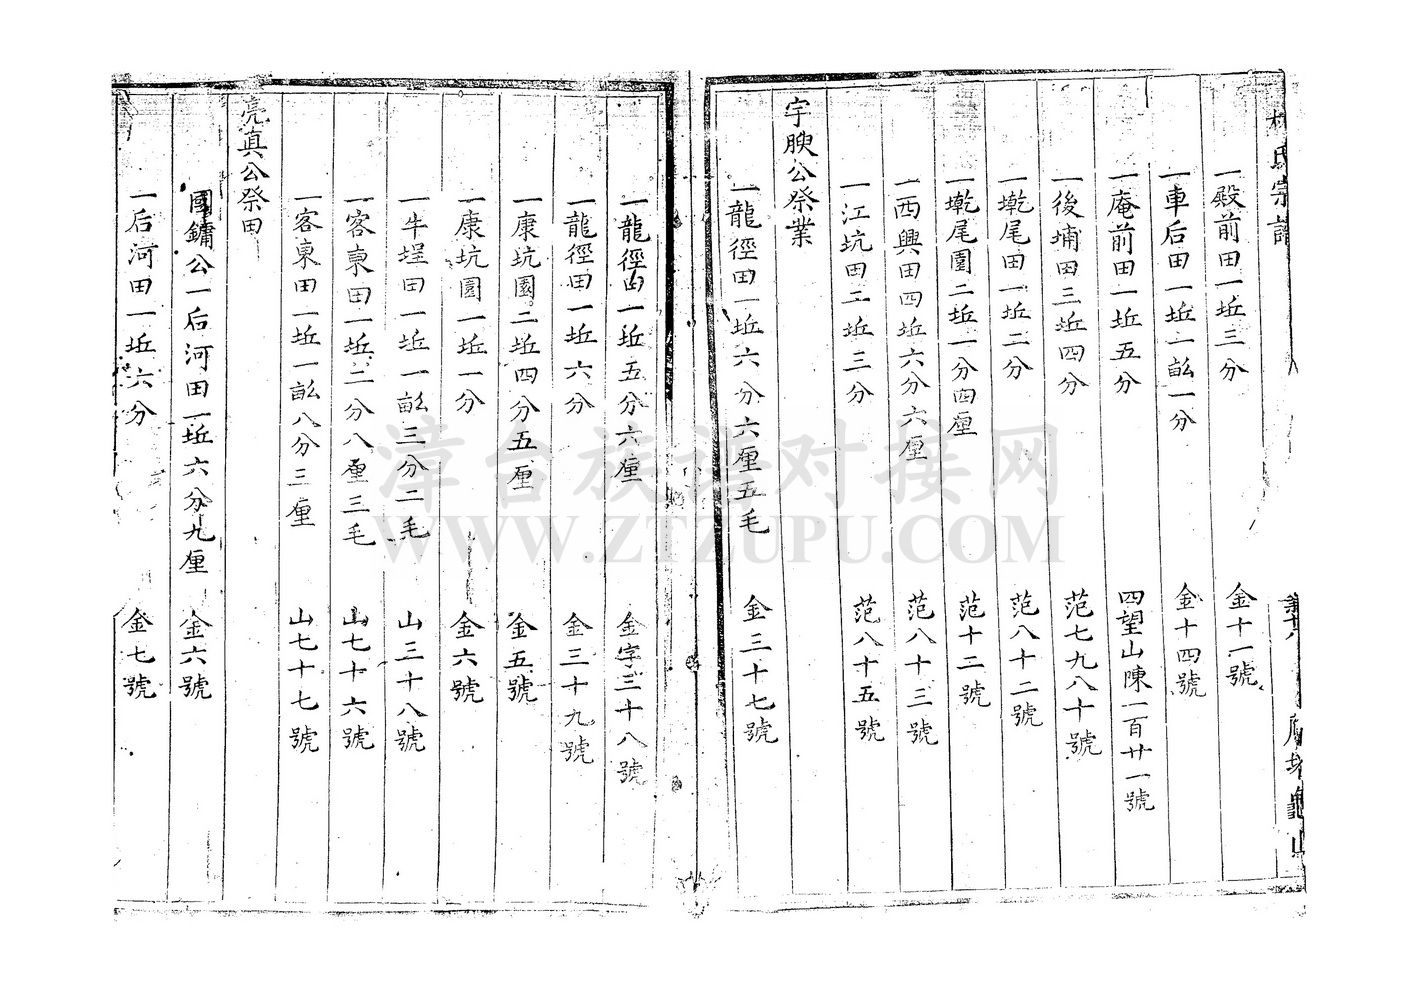 氏宗譜
一殿前田一坵三分 金十一號
一車后田一坵一畝一分 金十四號
一庵前田一坵五分 四望山陳一百廿一號
一後埔田三坵四分 范七九八十號
一墘尾田一坵二分 范八十二號
一墘尾園二坵一分四厘 范十二號
一西興田四坵六分六厘 范八十三號
一江坑田二坵三分 范八十五號
宇腴公祭業
一龍徑田一坵六分六厘五毛 金三十七號
一龍徑田一坵五分六厘 金字三十八號
一龍徑田一坵六分 金三十九號
一康坑園二坵四分五厘 金五號
一康坑園一坵一分 金六號
一牛埕田一坵一畝三分二毛 山三十八號
一客東田一坵二分八厘三毛 山七十六號
一客東田一坵一畝八分三厘 山七十七號
亮真公祭田
國鏞公一后河田一坵六分九厘 金六號
一后河田一坵六分 金七號
漳台族谱对接网
WWW.ZTZUPU.COM